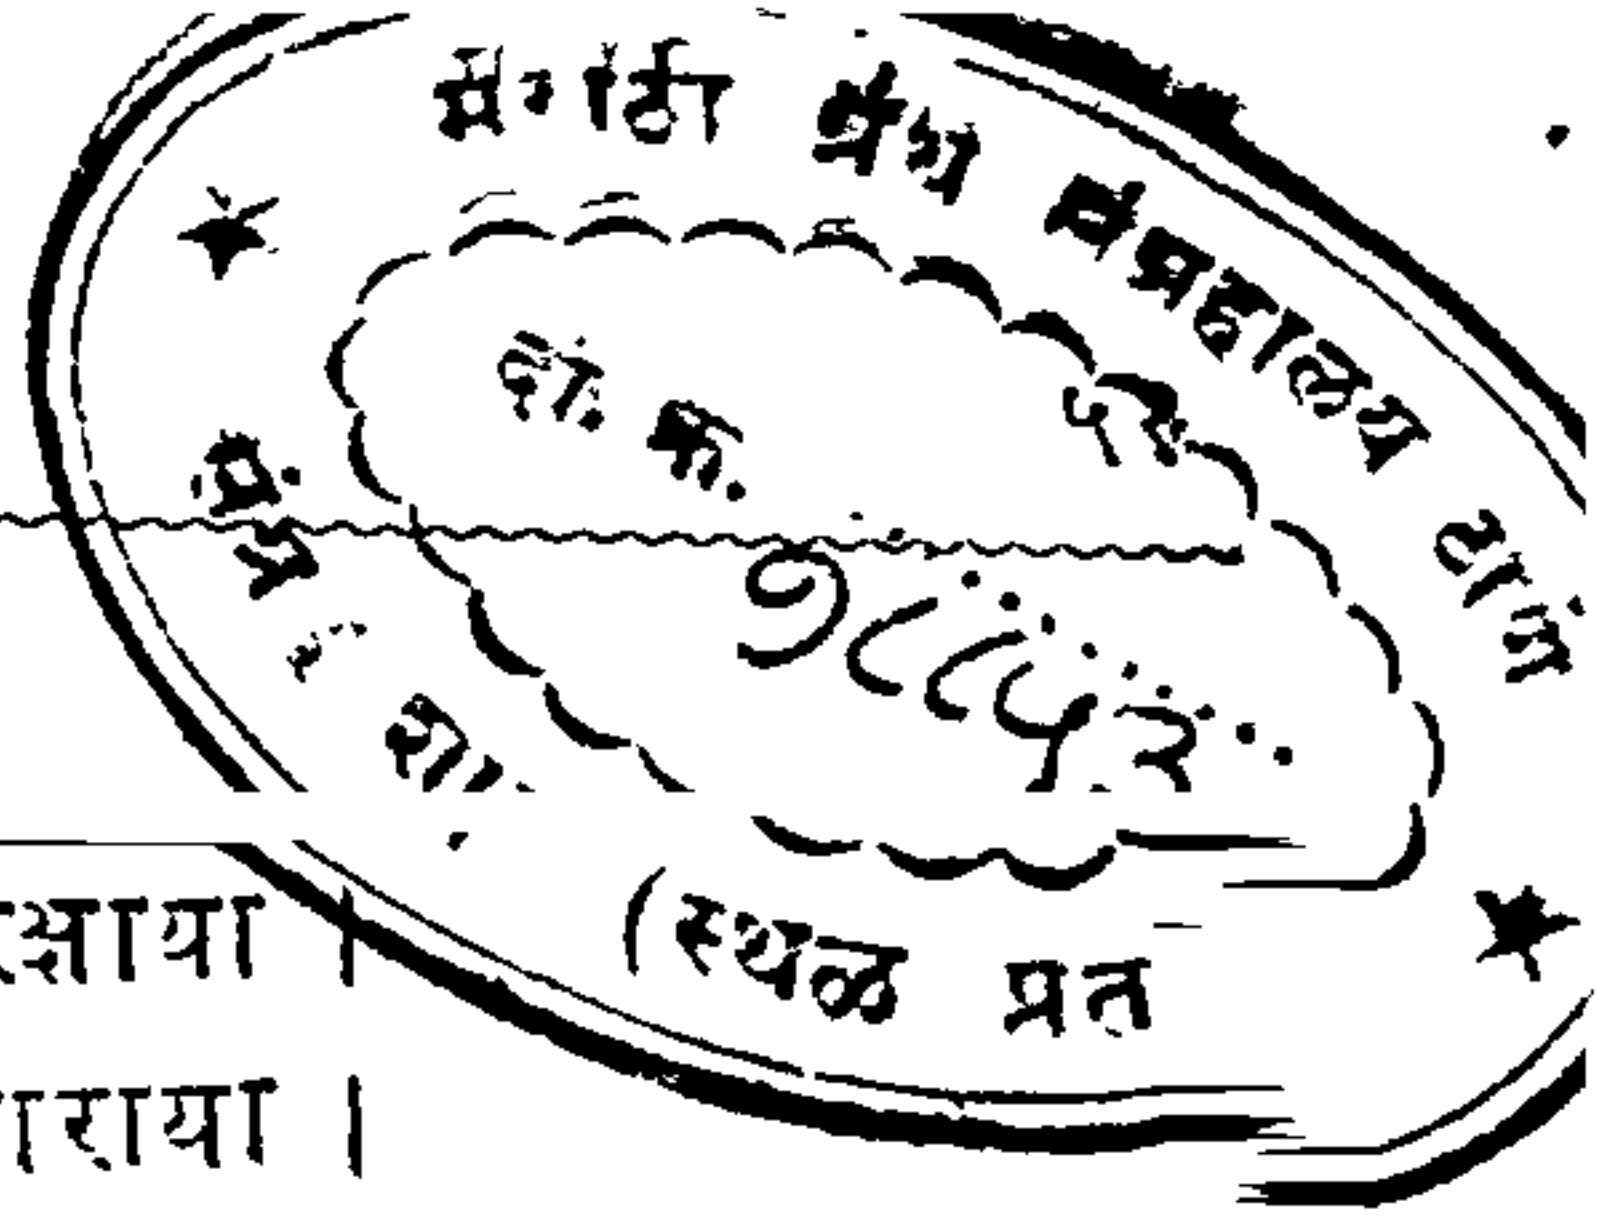 मराठी ग्रंथ संग्रहालय ठाणे
दा. क्र.
७८८५२
(स्थळ प्रत
रक्षाया ।
ाराया ।